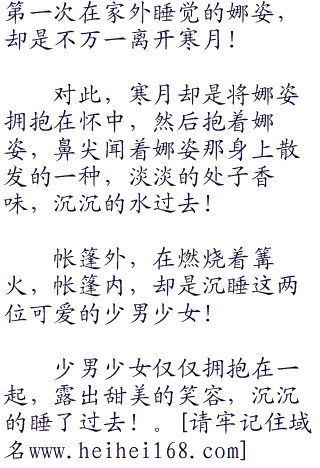 第一次在家外睡觉的娜姿，
却是不万一离开寒月！
对此，寒月却是将娜姿
拥抱在怀中，然后抱着娜
姿，鼻尖闻着娜姿那身上散
发的一种，淡淡的处子香
味，沉沉的水过去！
帐篷外，在燃烧着篝
火，帐篷内，却是沉睡这两
位可爱的少男少女！
少男少女仅仅拥抱在一
起，露出甜美的笑容，沉沉
的睡了过去！。[请牢记住域
名www.heihei168.com]